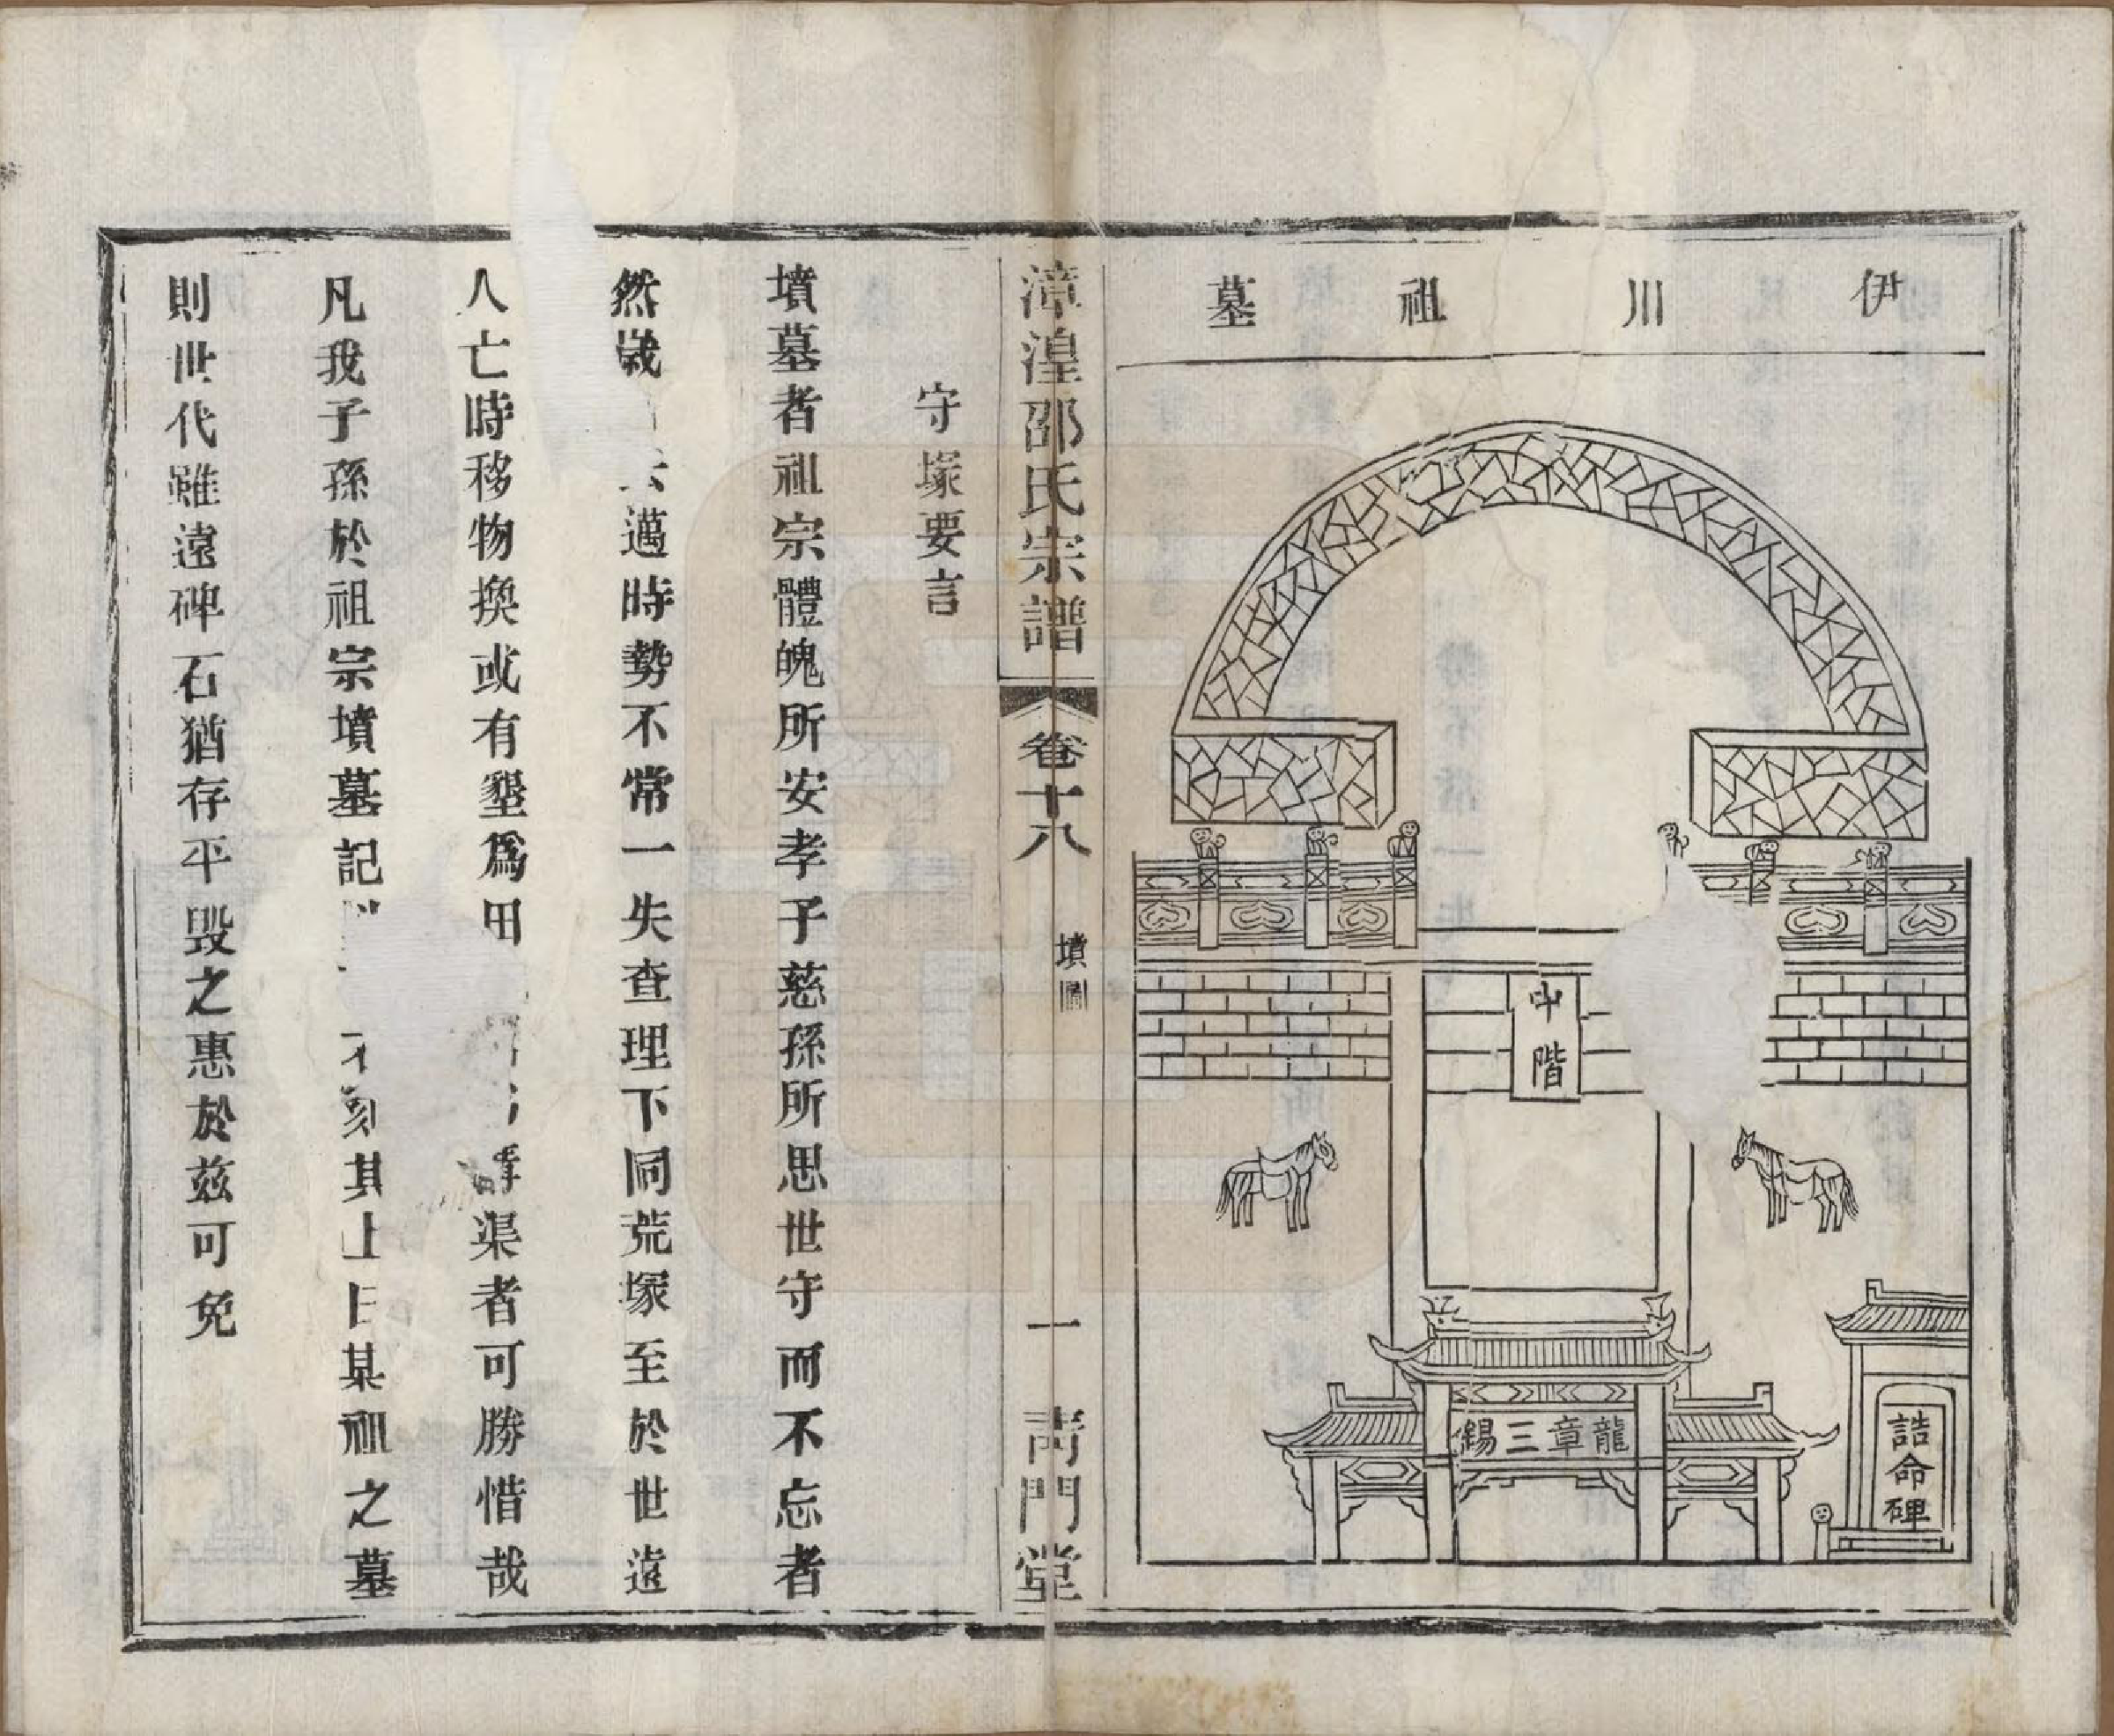 伊川祖墓
中階
龍章三錫
誥命碑
漳湟邵氏宗譜
卷十八
墳圖
一
靑門堂
守塚要言
墳墓者祖宗體魄所安孝子慈孫所思世守而不忘者
然歲去邁時勢不常一失查理下同荒塚至於世遠
人亡時移物換或有墾爲田溝渠者可勝惜哉
凡我子孫於祖宗墳墓記刻其上曰某祖之墓
則世代雖遠碑石猶存平毀之惠於兹可免